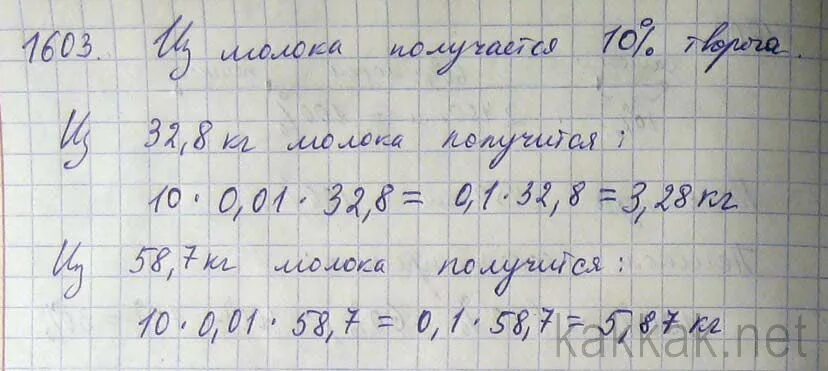 1603. Из молока получается 10% творога.
Из 32,8 кг молока получится:
10 · 0,01 · 32,8 = 0,1 · 32,8 = 3,28 кг
Из 58,7 кг молока получится:
10 · 0,01 · 58,7 = 0,1 · 58,7 = 5,87 кг
kakkak.net